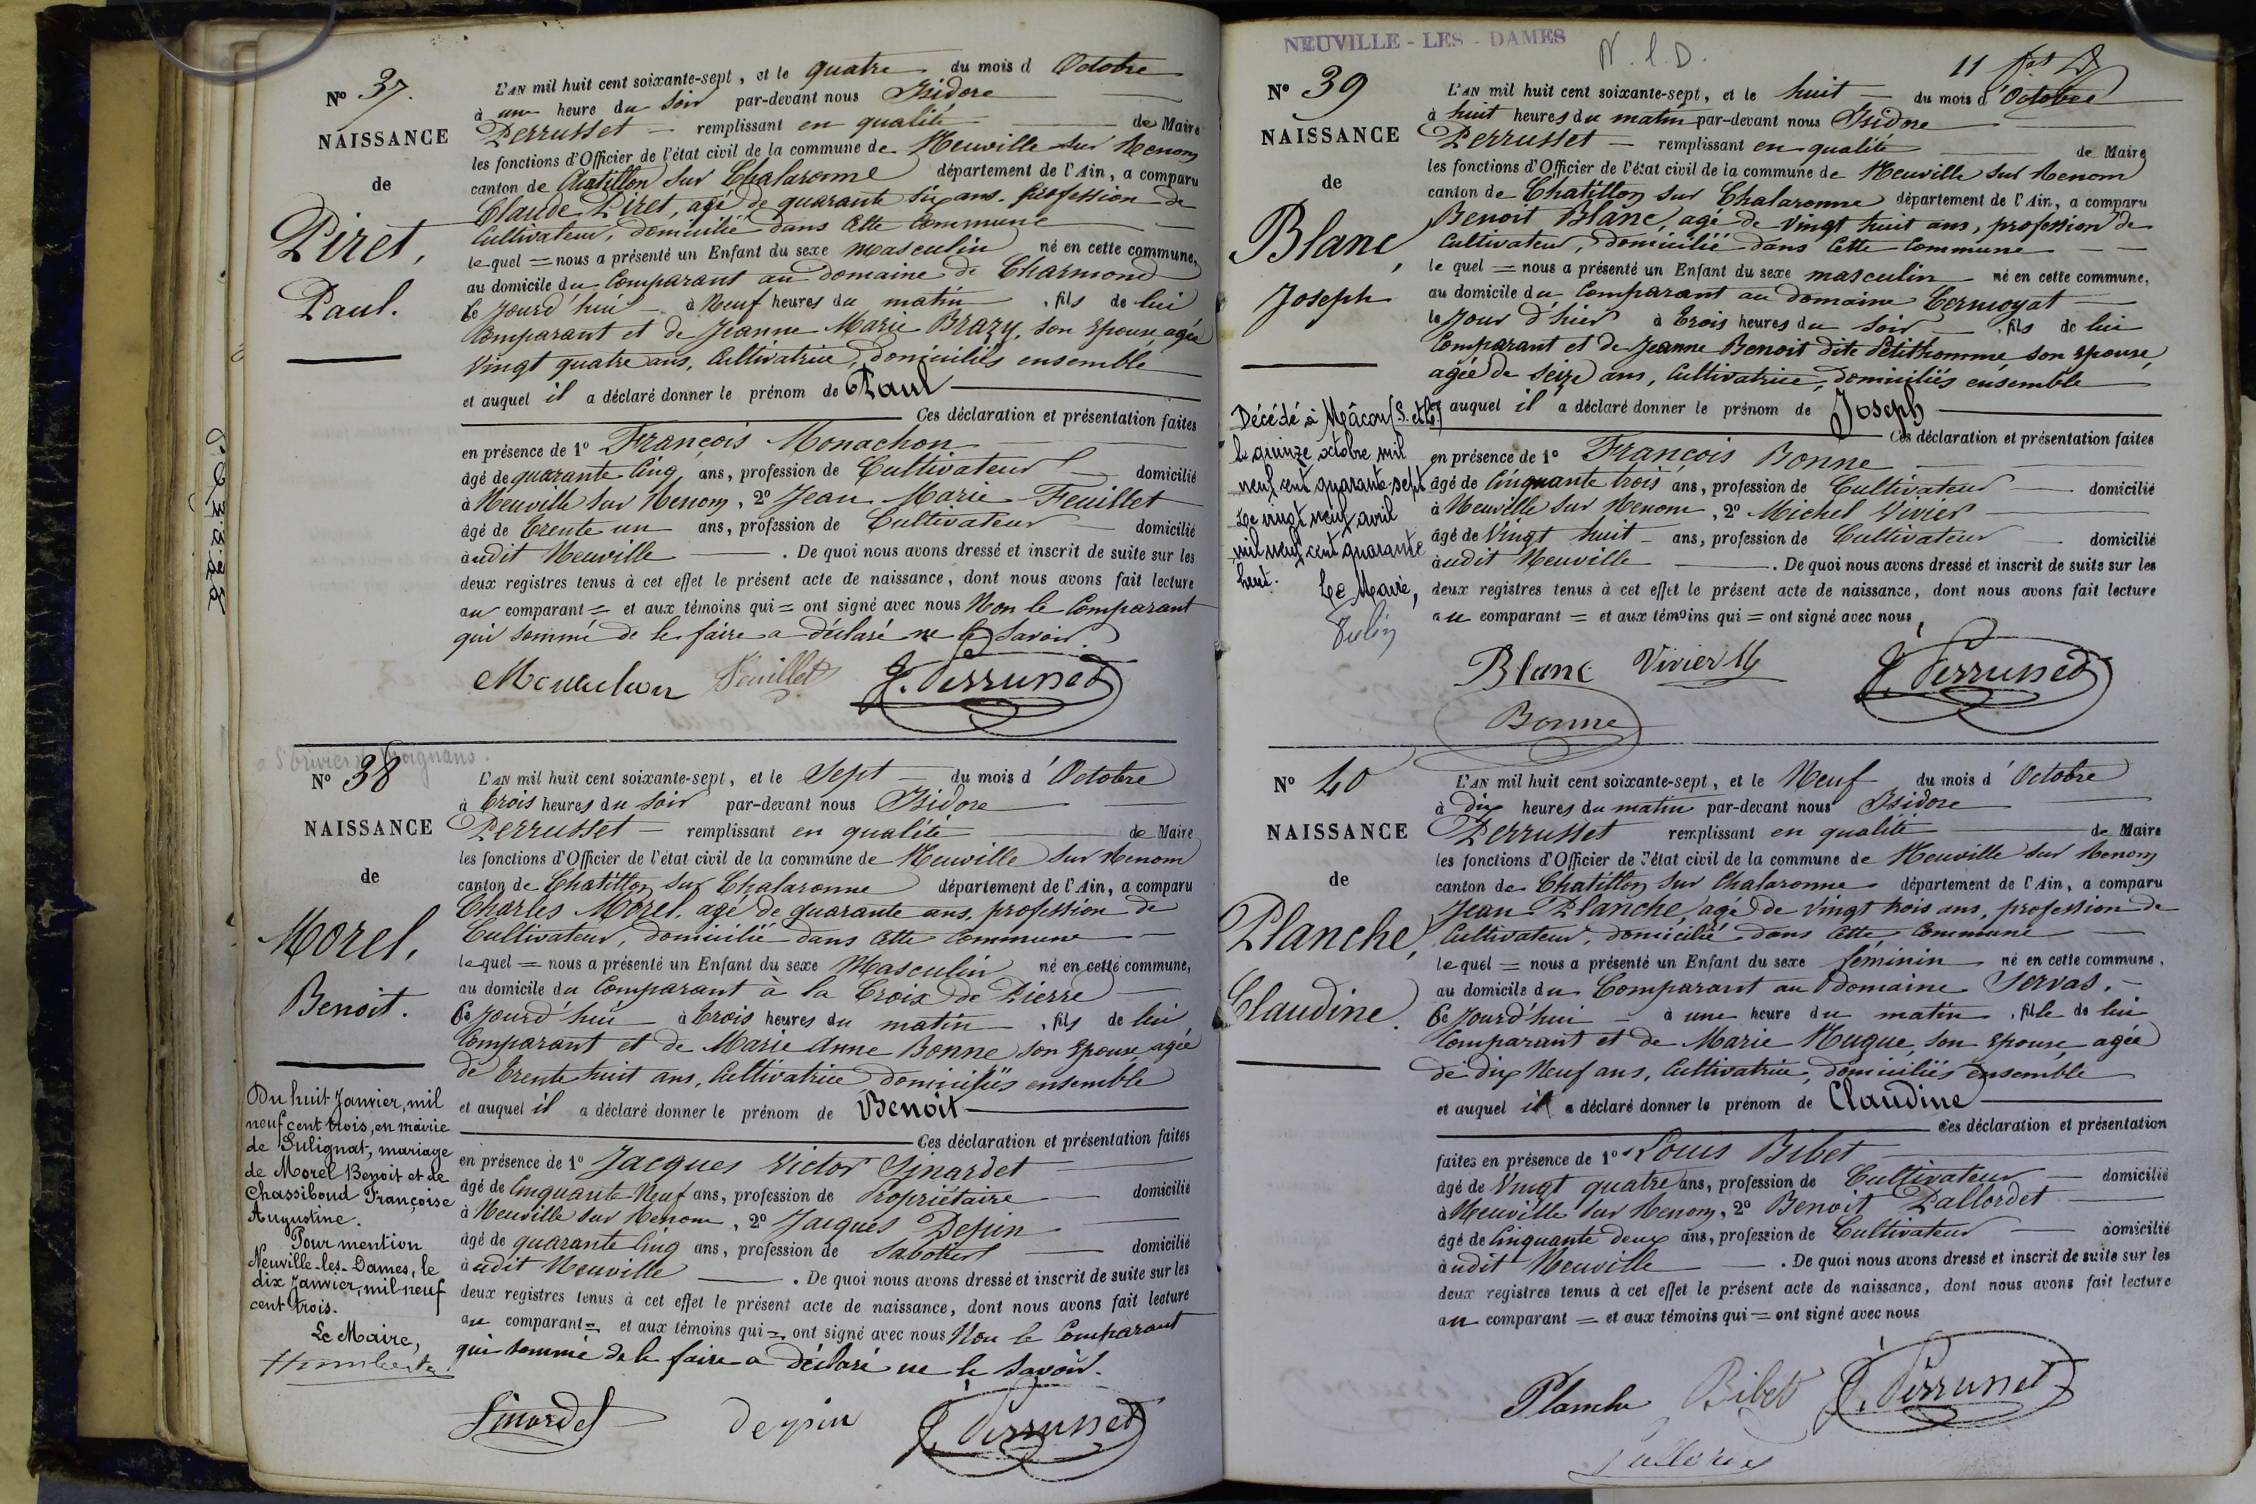 N° 37.
NAISSANCE
de
Piret,
Paul.
L'AN mil huit cent soixante-sept, et le quatre du mois d Octobre
à une heure du soir par-devant nous Isidore
Perrusset remplissant en qualité de Maire
les fonctions d'Officier de l'état civil de la commune de Neuville sur Renom
canton de Chatillon sur Chalaronne département de l'Ain, a comparu
Claude Piret, agé de quarante six ans, profession de
Cultivateur, domicilié dans cette commune
lequel = nous a présenté un Enfant du sexe masculin né en cette commune,
au domicile du Comparant au domaine de Charmond
ce jourd'hui à Neuf heures du matin, fils de lui
Comparant et de Jeanne Marie Brazy, son épouse, agée
Vingt quatre ans, Cultivatrice, domiciliés ensemble
et auquel il a déclaré donner le prénom de Paul
Ces déclaration et présentation faites
en présence de 1° François Monachon
âgé de quarante cinq ans, profession de Cultivateur domicilié
à Neuville sur Renom, 2° Jean Marie Feuillet
âgé de trente un ans, profession de Cultivateur domicilié
audit Neuville. De quoi nous avons dressé et inscrit de suite sur les
deux registres tenus à cet effet le présent acte de naissance, dont nous avons fait lecture
au comparant = et aux témoins qui = ont signé avec nous Non le Comparant
qui sommé de le faire a déclaré ne le savoir
Monachon Feuillet J. Perrusset
N° 38
NAISSANCE
de
Morel,
Benoit.
Du huit Janvier, mil
neuf cent trois, en mairie
de Sulignat, mariage
de Morel Benoit et de
Chassiboud Françoise
Augustine.
Pour mention
Neuville-les-Dames, le
dix Janvier, mil neuf
cent trois.
Le Maire,
L'AN mil huit cent soixante-sept, et le Sept du mois d'Octobre
à trois heures du soir par-devant nous Isidore
Perrusset remplissant en qualité de Maire
les fonctions d'Officier de l'état civil de la commune de Neuville sur Renom
canton de Chatillon sur Chalaronne département de l'Ain, a comparu
Charles Morel, agé de quarante ans, profession de
Cultivateur, domicilié dans cette commune
lequel = nous a présenté un Enfant du sexe Masculin né en cette commune,
au domicile du Comparant à la Croix de Pierre
Ce jourd'hui à trois heures du matin, fils de lui
Comparant et de Marie Anne Bonne, son épouse, agée
de trente huit ans, Cultivatrice, domiciliés ensemble
et auquel il a déclaré donner le prénom de Benoit
Ces déclaration et présentation faites
en présence de 1° Jacques Victor Sinardet
âgé de Cinquante Neuf ans, profession de Propriétaire domicilié
à Neuville sur Renom, 2° Jacques Depin
âgé de quarante cinq ans, profession de Sabotier domicilié
audit Neuville. De quoi nous avons dressé et inscrit de suite sur les
deux registres tenus à cet effet le présent acte de naissance, dont nous avons fait lecture
au comparant = et aux témoins qui = ont signé avec nous Non le Comparant
qui sommé de le faire a déclaré ne le savoir.
Sinardet Depin J. Perrusset
NEUVILLE - LES - DAMES
N. l. D.
11
N° 39
NAISSANCE
de
Blanc,
Joseph
Décédé à Mâcon (S. et L.)
le quinze octobre mil
neuf cent quarante-sept
Le vingt neuf avril
mil neuf cent quarante
huit.
Le Maire,
L'AN mil huit cent soixante-sept, et le huit du mois d'Octobre
à huit heures du matin par-devant nous Isidore
Perrusset remplissant en qualité de Maire
les fonctions d'Officier de l'état civil de la commune de Neuville sur Renom
canton de Chatillon sur Chalaronne département de l'Ain, a comparu
Benoit Blanc, agé de Vingt huit ans, profession de
Cultivateur, domicilié dans cette commune
lequel = nous a présenté un Enfant du sexe masculin né en cette commune,
au domicile du Comparant au domaine Cermoyat
le jour d'hier à trois heures du soir, fils de lui
Comparant et de Jeanne Benoit dite Petithomme, son épouse,
agée de seize ans, Cultivatrice, domiciliés ensemble
et auquel il a déclaré donner le prénom de Joseph
Ces déclaration et présentation faites
en présence de 1° François Bonne
âgé de Cinquante trois ans, profession de Cultivateur domicilié
à Neuville sur Renom, 2° Michel Vivier
âgé de Vingt huit ans, profession de Cultivateur domicilié
audit Neuville. De quoi nous avons dressé et inscrit de suite sur les
deux registres tenus à cet effet le présent acte de naissance, dont nous avons fait lecture
au comparant = et aux témoins qui = ont signé avec nous,
Blanc Vivier M J. Perrusset
Bonne
N° 40
NAISSANCE
de
Planche,
Claudine.
L'AN mil huit cent soixante-sept, et le Neuf du mois d'Octobre
à dix heures du matin par-devant nous Isidore
Perrusset remplissant en qualité de Maire
les fonctions d'Officier de l'état civil de la commune de Neuville sur Renom
canton de Chatillon sur Chalaronne département de l'Ain, a comparu
Jean Planche, agé de Vingt trois ans, profession de
Cultivateur, domicilié dans cette commune
lequel = nous a présenté un Enfant du sexe féminin né en cette commune,
au domicile du Comparant au domaine Servas.
Ce jourd'hui à une heure du matin, fille de lui
Comparant et de Marie Hugue, son épouse, agée
de dix Neuf ans, Cultivatrice, domiciliés ensemble
et auquel il a déclaré donner le prénom de Claudine
Ces déclaration et présentation
faites en présence de 1° Louis Bibet
âgé de Vingt quatre ans, profession de Cultivateur domicilié
à Neuville sur Renom, 2° Benoit Pallordet
âgé de Cinquante deux ans, profession de Cultivateur domicilié
audit Neuville. De quoi nous avons dressé et inscrit de suite sur les
deux registres tenus à cet effet le présent acte de naissance, dont nous avons fait lecture
au comparant = et aux témoins qui = ont signé avec nous
Planche Bibet J. Perrusset